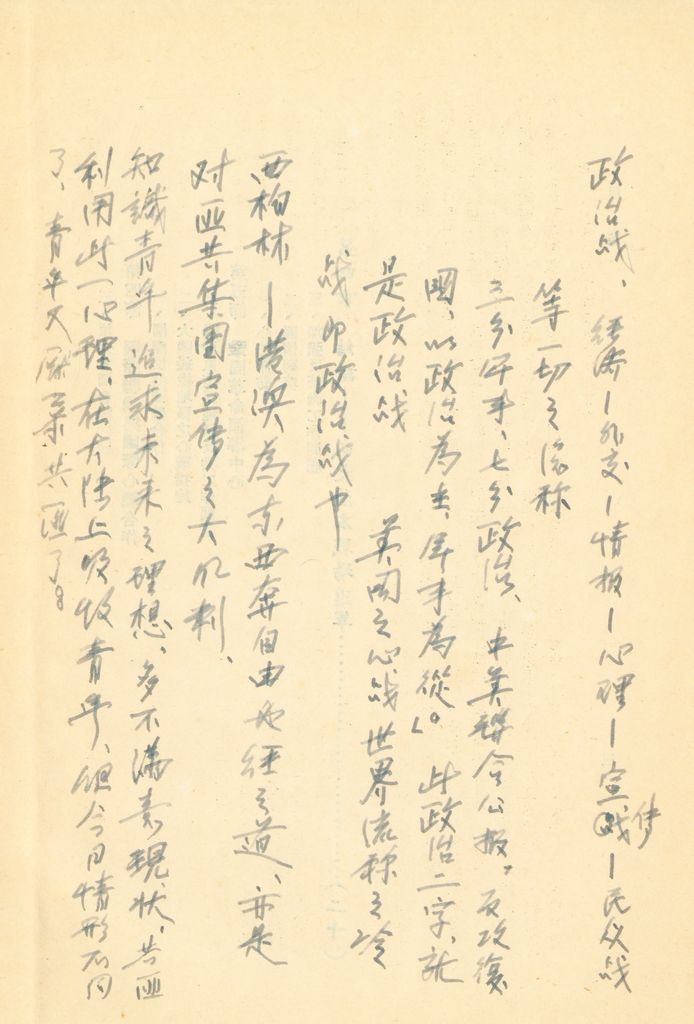 政治战、经济—外交—情报—心理—宣传—民众战
等一切之总称
三分军事、七分政治、中美联合公报，反攻復
國、以政治為主、军事為從」。此政治二字、就
是政治战　英国之心战世界流称之冷
战即政治战也
西柏林—港澳為东西奔自由必经之道、亦是
对匪共集团宣传之大不利、
知識青年追求未来之理想、多不满意現状、共匪
利用此一心理、在大陆上吸收青年、但今日情形不同
了、青年又厭棄共匪了。